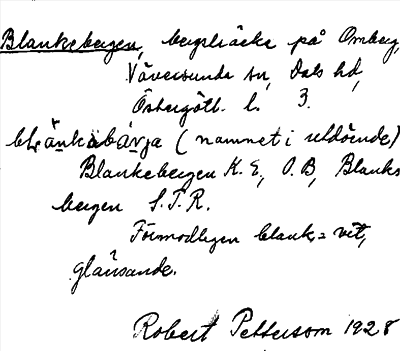 Blankebergen, bergsträcka på Omberg,
Väversunda sn, Dals hd,
Östergötl. l. 3.
blänkabärja (namnet i utdöende)
Blankebergen K. E, O. B, Blanks
bergen S.T.R.
Förmodligen blank = vit,
glänsande.
Robert Pettersson 1928